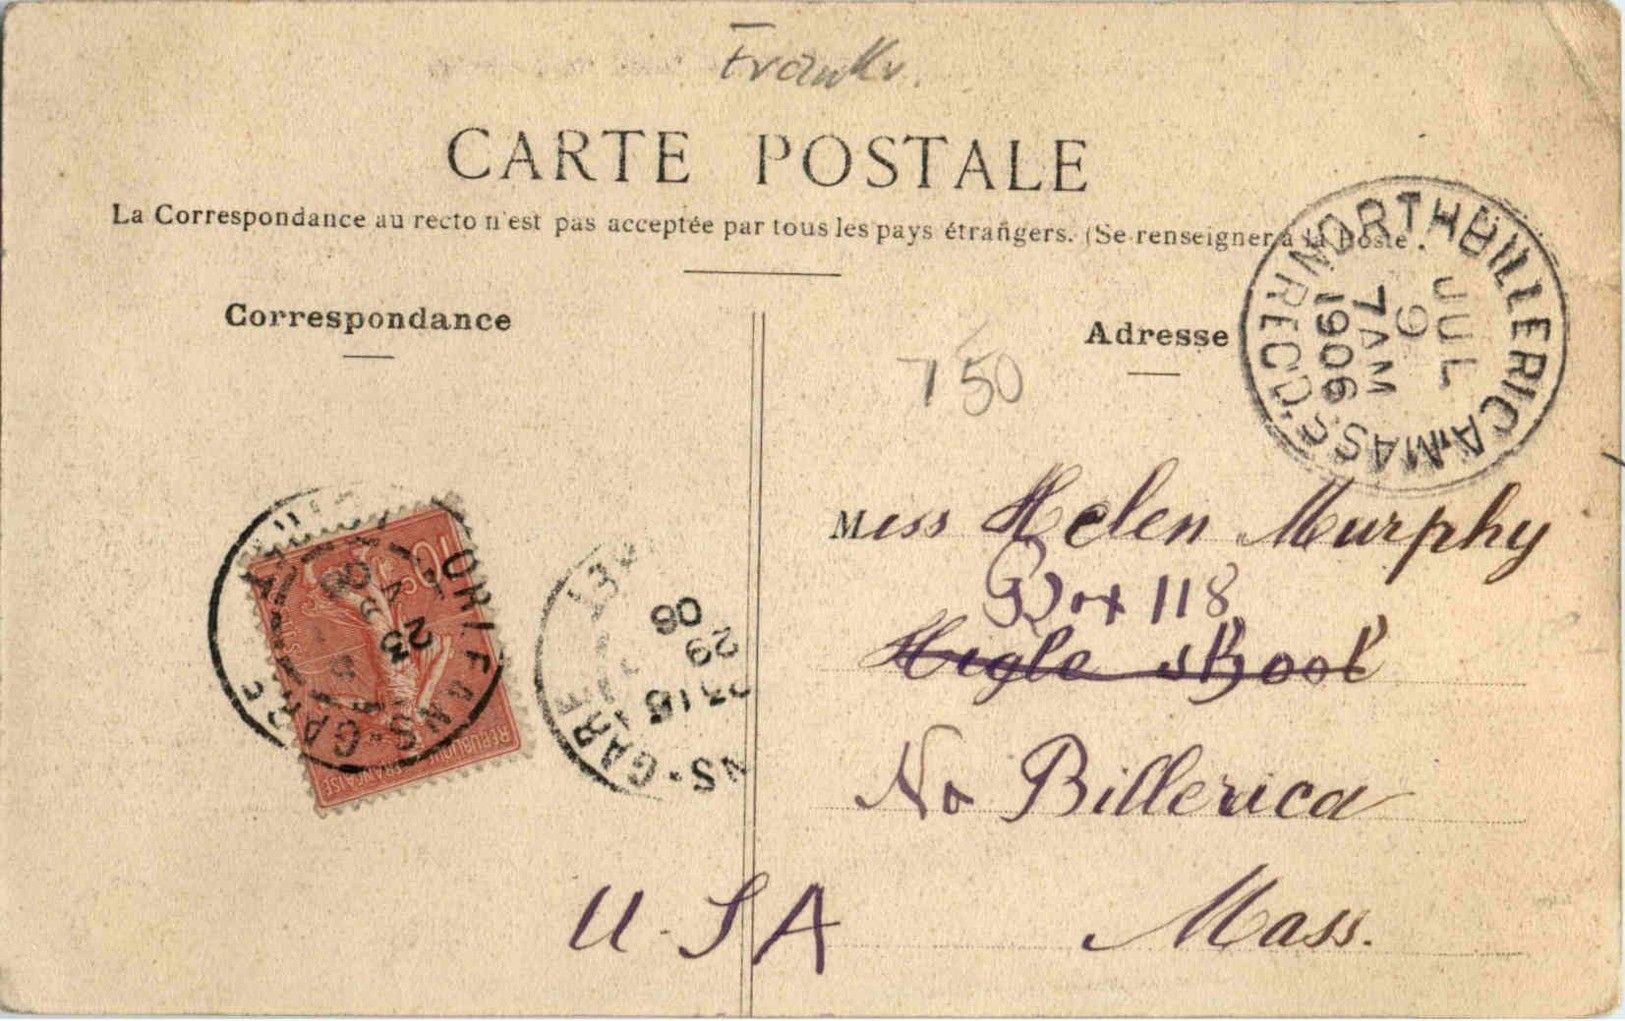 Frankr.
CARTE POSTALE
La Correspondance au recto n'est pas acceptée par tous les pays étrangers. (Se renseigner à la Poste.
Correspondance
Adresse
NORTH BILLERICA, MASS.
REC'D.
JUL
9
7 AM
1906
7 50
Miss Helen Murphy
Box 118
No Billerica
Mass.
U.S.A
10c
RÉPUBLIQUE FRANÇAISE
ORLEANS-GARE
23
06
NS-GARE
29
06